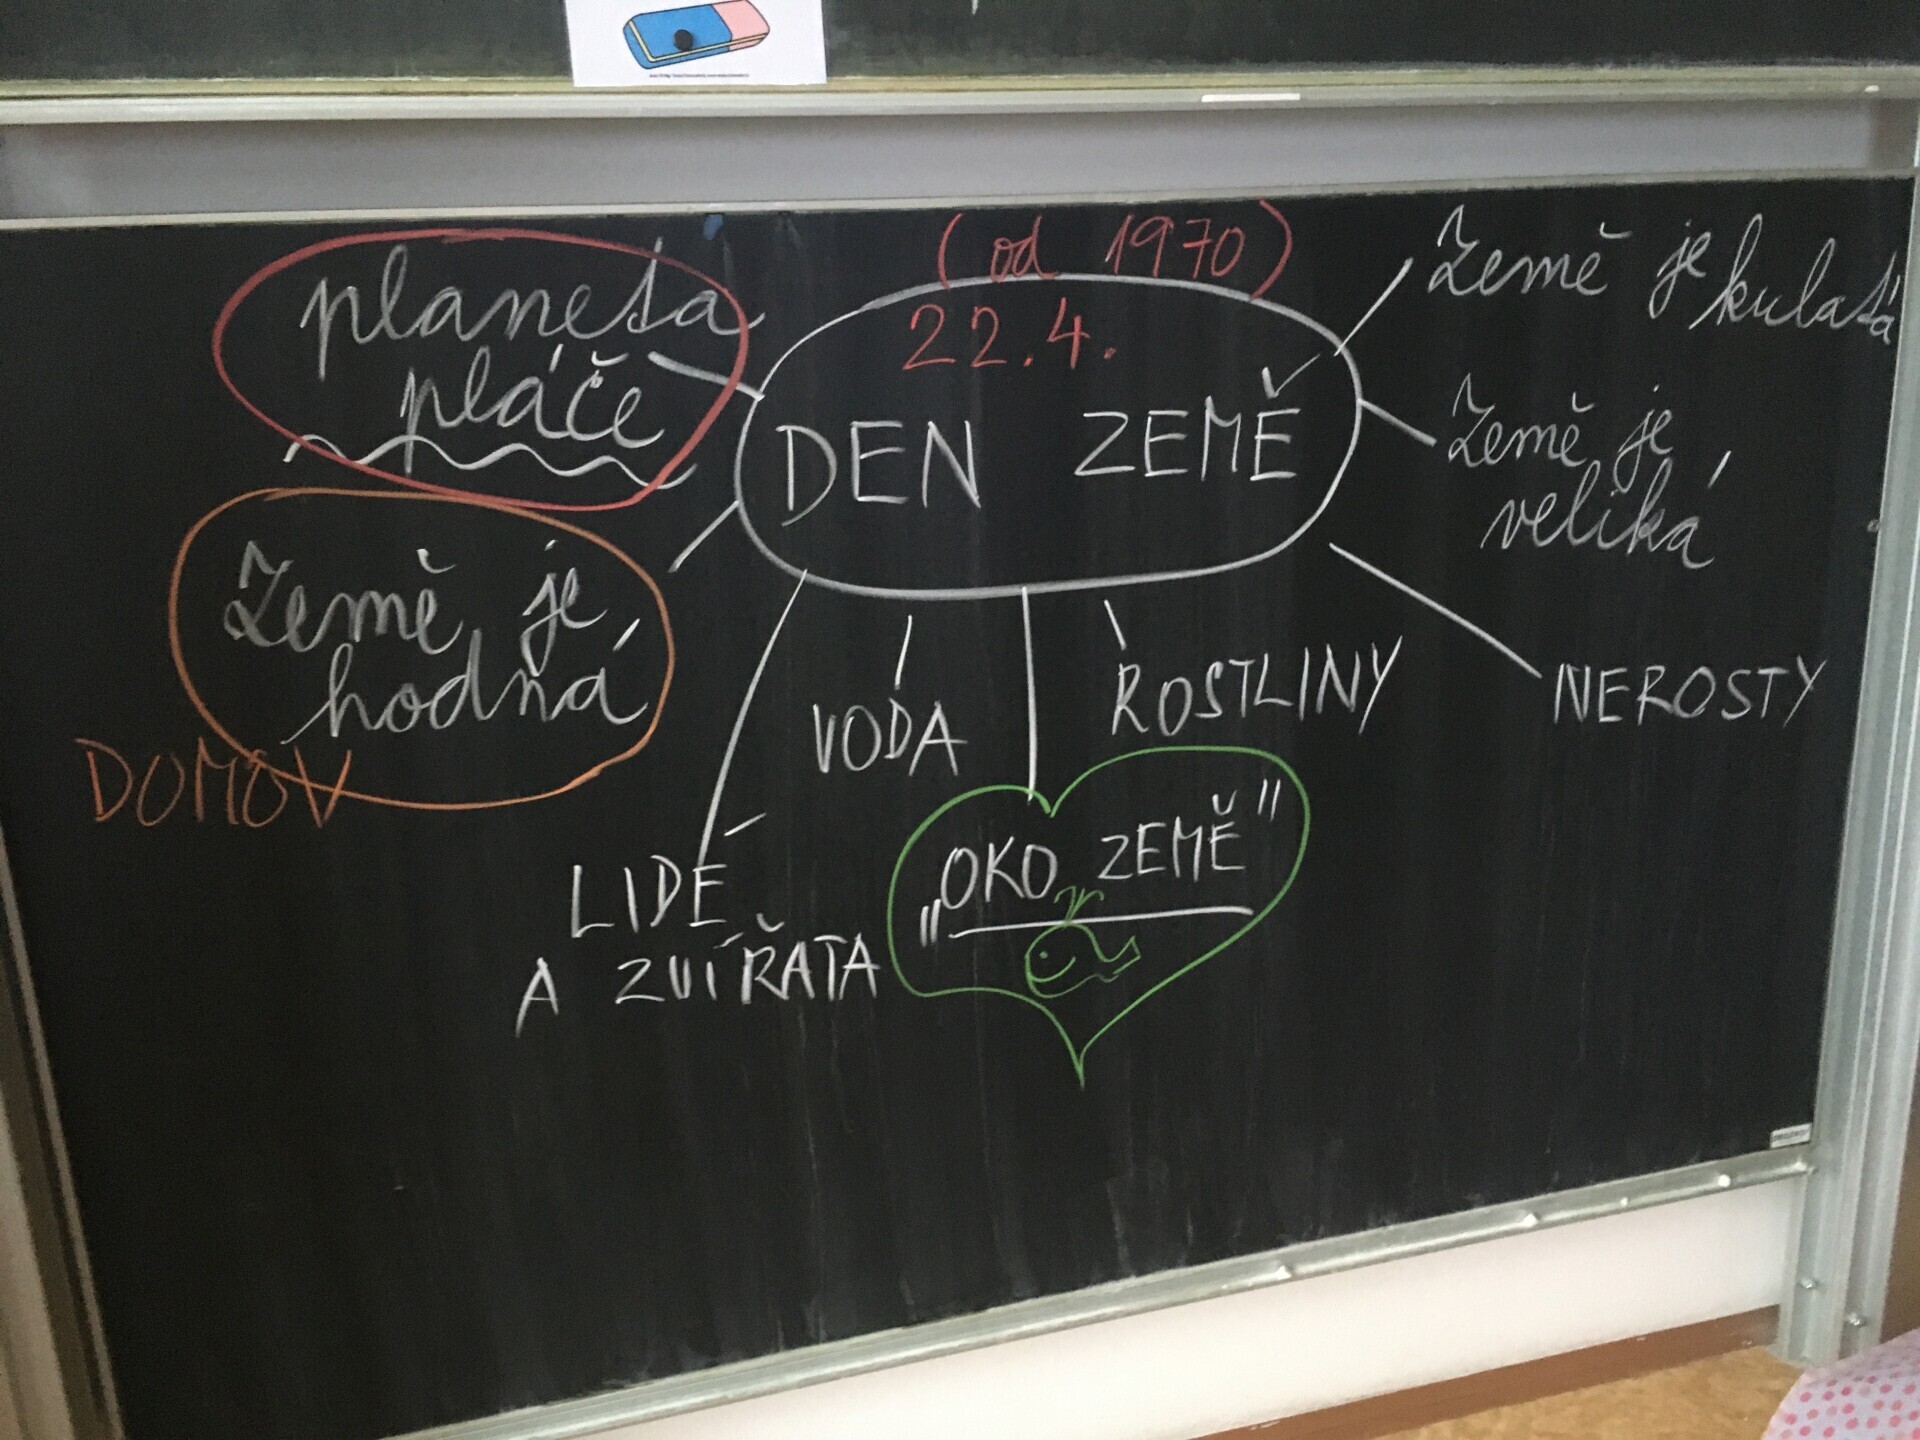 (od 1970)
22.4.
DEN ZEMĚ
planeta
pláče
Země je
hodná
DOMOV
Země je
kulatá
Země je
veliká
NEROSTY
ROSTLINY
VODA
„OKO ZEMĚ"
LIDÉ
A ZVÍŘATA